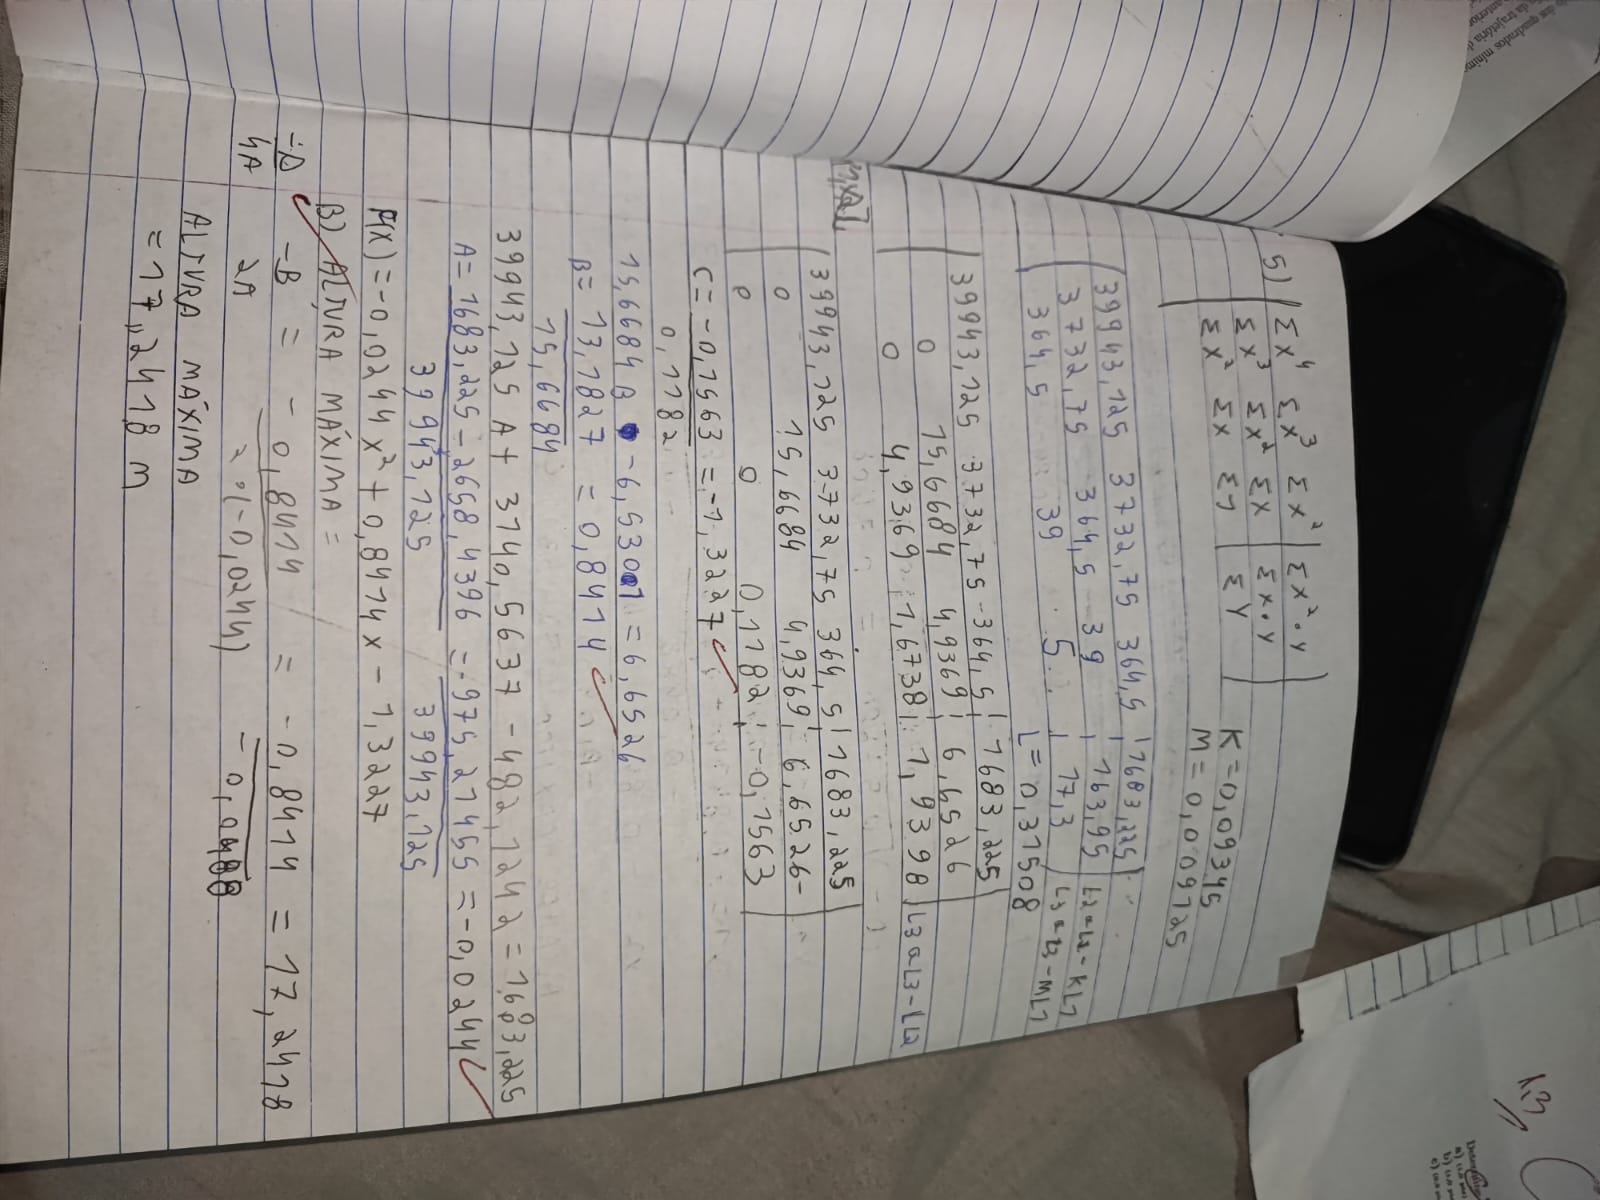 dos quadrados mínimos
da trajetória d
anterior
1,3
Determine
a)
b)
c)
5) | Σx⁴ Σx³ Σx² | Σx².y |
| Σx³ Σx² Σx | Σx.y |
| Σx² Σx Σ1 | Σy |
K=0,09345
M=0,009125
39943,125 3732,75 364,5 | 1683,225
3732,75 364,5 39 | 163,95 L2←L2-KL1
364,5 39 5 | 17,3 L3←L3-ML1
L=0,31508
39943,125 3732,75 -364,5 | 1683,225
0 15,6684 4,9369 | 6,6526
0 4,9369 1,6738 | 1,9398 L3←L3-LL2
39943,125 3732,75 364,5 | 1683,225
0 15,6684 4,9369 | 6,6526-
0 0 0,1182 | -0,1563
C= -0,1563/0,1182 = -1,3227 ✓
15,6684 B -6,5301 = 6,6526
B= 13,1827/15,6684 = 0,8414 ✓
39943,125 A + 3140,5637 - 482,1242 = 1683,225
A= 1683,225-2658,4396/39943,125 = -975,21455/39943,125 = -0,0244 ✓
F(x)=-0,0244x²+0,8414x-1,3227
B) ALTURA MÁXIMA =
-Δ/4A ✓ -B/2A = -0,8414/2.(-0,0244) = -0,8414/-0,0488 = 17,2418
ALTURA MÁXIMA
=17,2418 m